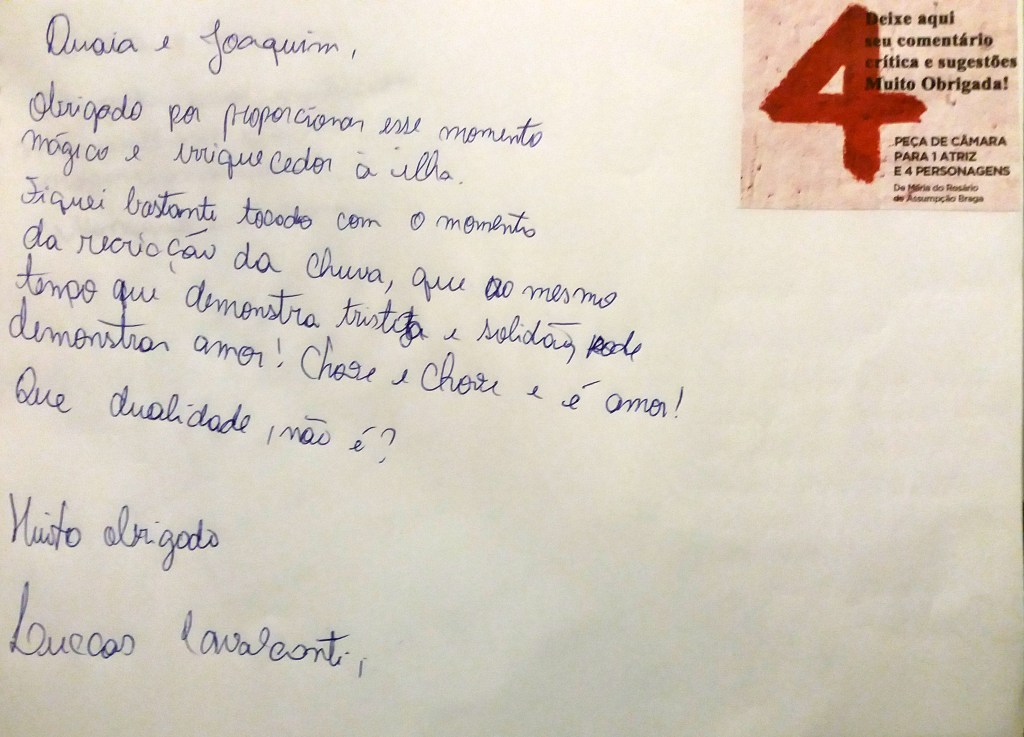 Duaia e Joaquim,
Obrigado por proporcionar esse momento
mágico e irriquecedor à ilha.
Fiquei bastante tocado com o momento
da recriação da chuva, que ao mesmo
tempo que demonstra tristeza e solidão, pode
demonstrar amor! Chove e Chove e é amor!
Que dualidade, não é?
Muito obrigado
Luccas Cavalcanti,
Deixe aqui
seu comentário
crítica e sugestões
Muito Obrigada!
4
PEÇA DE CÂMARA
PARA 1 ATRIZ
E 4 PERSONAGENS
De Maria do Rosário
de Assumpção Braga